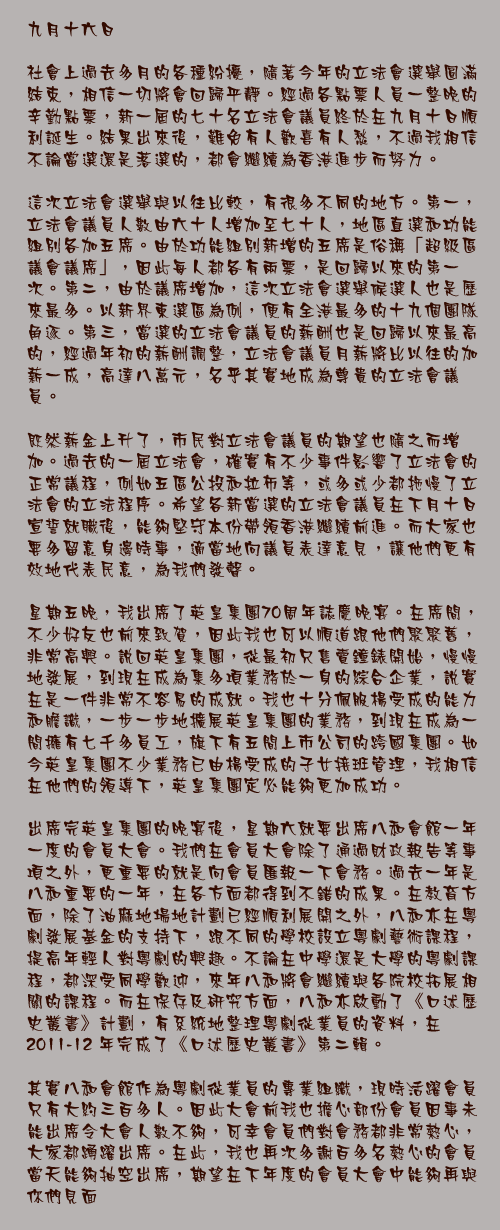 九月十六日
社會上過去多月的各種紛擾，隨著今年的立法會選舉圓滿
結束，相信一切將會回歸平靜。經過各點票人員一整晚的
辛勤點票，新一屆的七十名立法會議員終於在九月十日順
利誕生。結果出來後，難免有人歡喜有人愁，不過我相信
不論當選還是落選的，都會繼續為香港進步而努力。
這次立法會選舉與以往比較，有很多不同的地方。第一，
立法會議員人數由六十人增加至七十人，地區直選和功能
組別各加五席。由於功能組別新增的五席是俗稱「超級區
議會議席」，因此每人都各有兩票，是回歸以來的第一
次。第二，由於議席增加，這次立法會選舉候選人也是歷
來最多。以新界東選區為例，便有全港最多的十九個團隊
角逐。第三，當選的立法會議員的薪酬也是回歸以來最高
的，經過年初的薪酬調整，立法會議員月薪將比以往的加
薪一成，高達八萬元，名乎其實地成為尊貴的立法會議
員。
既然薪金上升了，市民對立法會議員的期望也隨之而增
加。過去的一屆立法會，確實有不少事件影響了立法會的
正常議程，例如五區公投和拉布等，或多或少都拖慢了立
法會的立法程序。希望各新當選的立法會議員在下月十日
宣誓就職後，能夠堅守本份帶領香港繼續前進。而大家也
要多留意身邊時事，適當地向議員表達意見，讓他們更有
效地代表民意，為我們發聲。
星期五晚，我出席了英皇集團70周年誌慶晚宴。在席間，
不少好友也前來致賀，因此我也可以順道跟他們聚聚舊，
非常高興。說回英皇集團，從最初只售賣鐘錶開始，慢慢
地發展，到現在成為集多項業務於一身的綜合企業，說實
在是一件非常不容易的成就。我也十分佩服楊受成的能力
和膽識，一步一步地擴展英皇集團的業務，到現在成為一
間擁有七千多員工，旗下有五間上市公司的跨國集團。如
今英皇集團不少業務已由楊受成的子女接班管理，我相信
在他們的領導下，英皇集團定必能夠更加成功。
出席完英皇集團的晚宴後，星期六就要出席八和會館一年
一度的會員大會。我們在會員大會除了通過財政報告等事
項之外，更重要的就是向會員匯報一下會務。過去一年是
八和重要的一年，在各方面都得到不錯的成果。在教育方
面，除了油麻地場地計劃已經順利展開之外，八和亦在粵
劇發展基金的支持下，跟不同的學校設立粵劇藝術課程，
提高年輕人對粵劇的興趣。不論在中學還是大學的粵劇課
程，都深受同學歡迎，來年八和將會繼續與各院校拓展相
關的課程。而在保存及研究方面，八和亦啟動了《口述歷
史叢書》計劃，有系統地整理粵劇從業員的資料，在
2011-12 年完成了《口述歷史叢書》第二輯。
其實八和會館作為粵劇從業員的專業組織，現時活躍會員
只有大約三百多人。因此大會前我也擔心部份會員因事未
能出席令大會人數不夠，可幸會員們對會務都非常熱心，
大家都踴躍出席。在此，我也再次多謝百多名熱心的會員
當天能夠抽空出席，期望在下年度的會員大會中能夠再與
你們見面